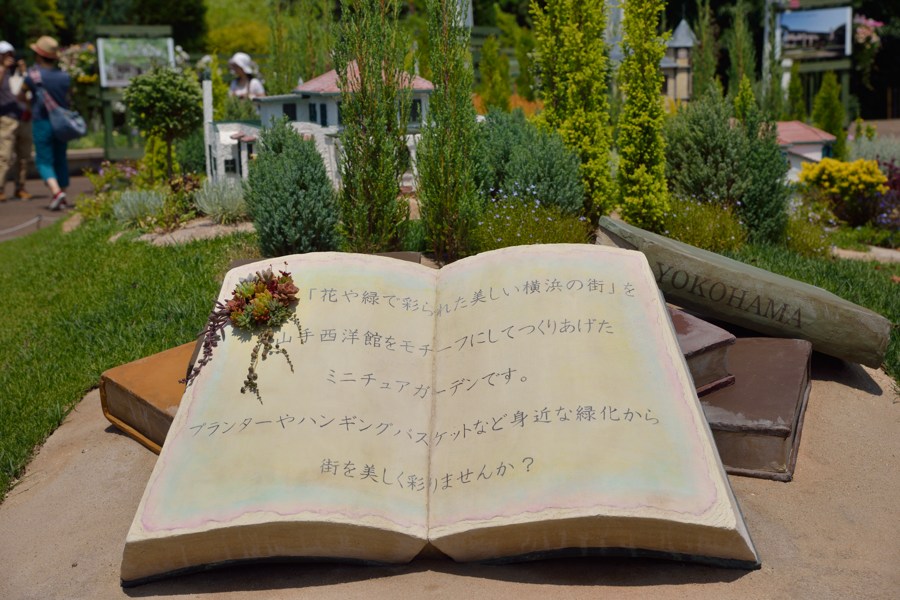 「花や緑で彩られた美しい横浜の街」を
山手西洋館をモチーフにしてつくりあげた
ミニチュアガーデンです。
プランターやハンギングバスケットなど身近な緑化から
街を美しく彩りませんか？
YOKOHAMA